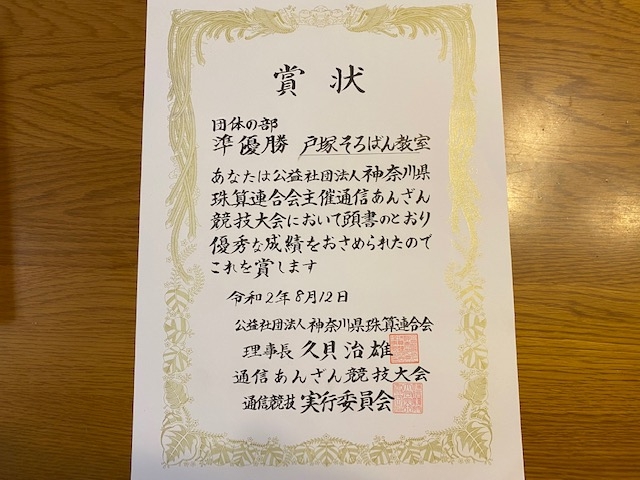 賞状
団体の部
準優勝 戸塚そろばん教室
あなたは公益社団法人神奈川県
珠算連合会主催通信あんざん
競技大会において頭書のとおり
優秀な成績をおさめられたので
これを賞します
令和2年8月12日
公益社団法人神奈川県珠算連合会
理事長 久貝治雄
通信あんざん競技大会
通信競技 実行委員会